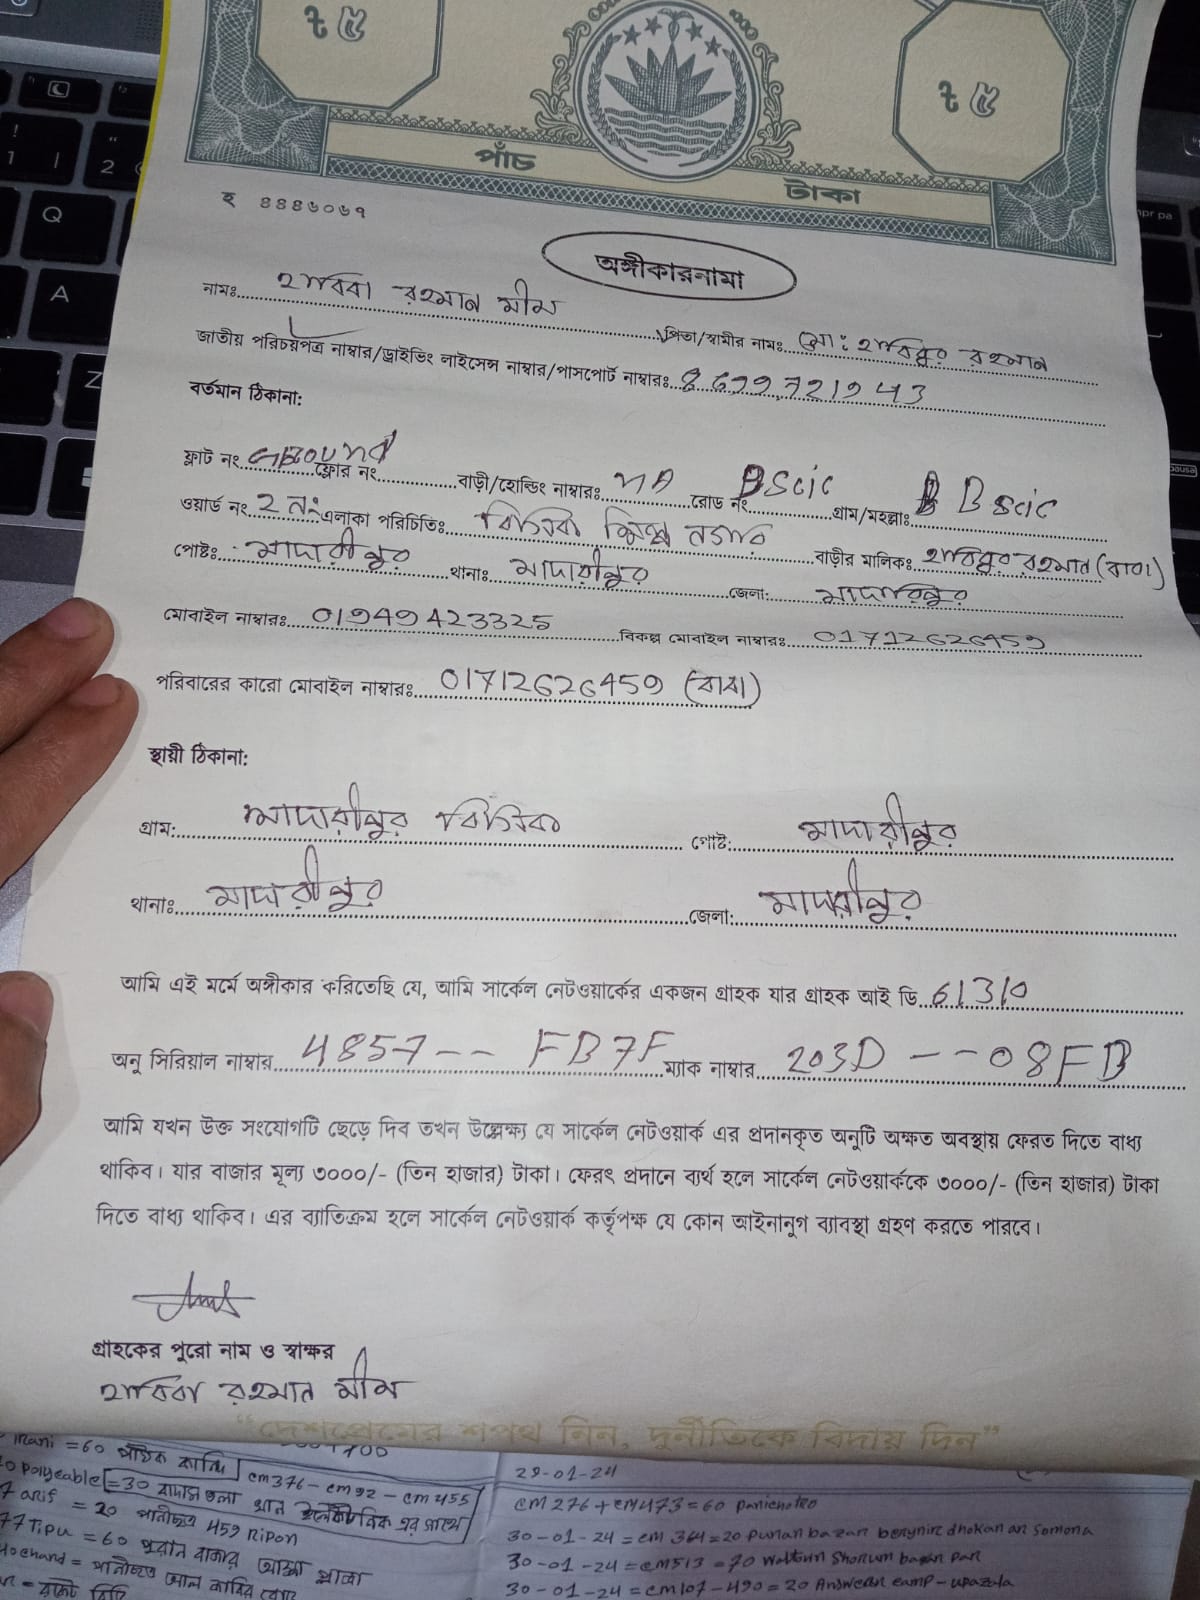 ৳ ৫
৳ ৫
পাঁচ টাকা
হ ৪৪৪৬০৬৭
অঙ্গীকারনামা
নামঃ হাবিবা রহমান মীম পিতা/স্বামীর নামঃ মো: হাবিবুর রহমান
জাতীয় পরিচয়পত্র নাম্বার/ড্রাইভিং লাইসেন্স নাম্বার/পাসপোর্ট নাম্বারঃ 8699721943
বর্তমান ঠিকানা:
ফ্লাট নং GROUND ফ্লোর নং বাড়ী/হোল্ডিং নাম্বারঃ NA রোড নং BSCIC গ্রাম/মহল্লাঃ BSCIC
ওয়ার্ড নং 2 নং এলাকা পরিচিতিঃ বিসিক শিল্প নগরী বাড়ীর মালিকঃ হাবিবুর রহমান (বাবা)
পোষ্টঃ মাদারীপুর থানাঃ মাদারীপুর জেলা: মাদারিপুর
মোবাইল নাম্বারঃ 01949423325 বিকল্প মোবাইল নাম্বারঃ 01712626459
পরিবারের কারো মোবাইল নাম্বারঃ 01712626459 (বাবা)
স্থায়ী ঠিকানা:
গ্রাম: মাদারীপুর বিসিক পোষ্ট: মাদারীপুর
থানাঃ মাদারীপুর জেলা: মাদারীপুর
আমি এই মর্মে অঙ্গীকার করিতেছি যে, আমি সার্কেল নেটওয়ার্কের একজন গ্রাহক যার গ্রাহক আই ডি 61310
অনু সিরিয়াল নাম্বার 4857-- FB7F ম্যাক নাম্বার 203D --08FB
আমি যখন উক্ত সংযোগটি ছেড়ে দিব তখন উল্লেক্ষ্য যে সার্কেল নেটওয়ার্ক এর প্রদানকৃত অনুটি অক্ষত অবস্থায় ফেরত দিতে বাধ্য
থাকিব। যার বাজার মূল্য ৩০০০/- (তিন হাজার) টাকা। ফেরৎ প্রদানে ব্যর্থ হলে সার্কেল নেটওয়ার্ককে ৩০০০/- (তিন হাজার) টাকা
দিতে বাধ্য থাকিব। এর ব্যাতিক্রম হলে সার্কেল নেটওয়ার্ক কর্তৃপক্ষ যে কোন আইনানুগ ব্যাবস্থা গ্রহণ করতে পারবে।
গ্রাহকের পুরো নাম ও স্বাক্ষর
হাবিবা রহমান মীম
“দেশপ্রেমের শপথ নিন, দুর্নীতিকে বিদায় দিন”
=60 cm376-cm92-cm455
=30
=20 459 Ripon
Tipu =60 পুরান বাজার
29-01-24
CM276+CM473=60
30-01-24=CM364=20 Puran bazar
30-01-24=CM513=70 Waltun Shorum
30-01-24=CM107-490=20